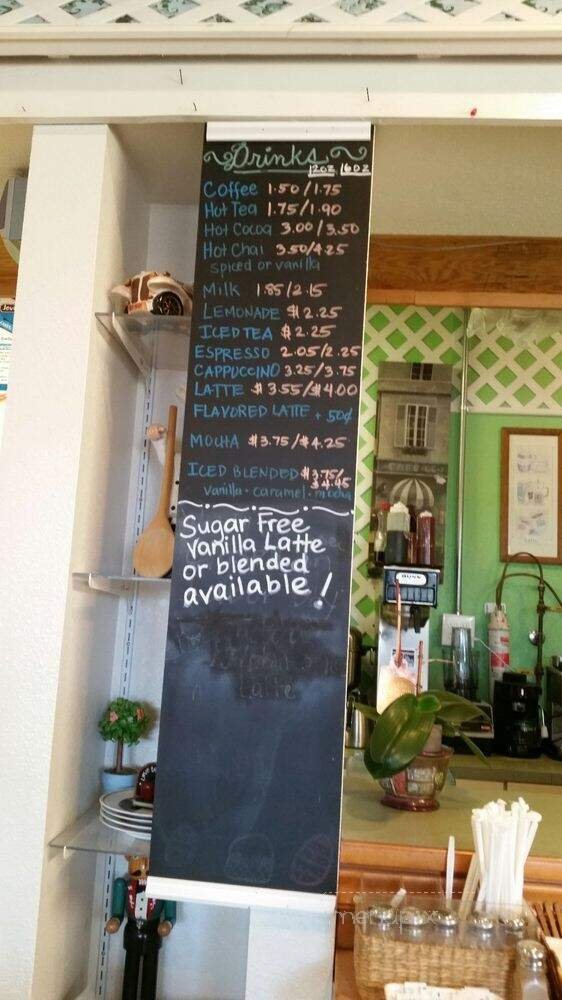 Drinks
12oz 16oz
Coffee 1.50/1.75
Hot Tea 1.75/1.90
Hot Cocoa 3.00/3.50
Hot Chai 3.50/4.25
spiced or vanilla
Milk 1.85/2.15
LEMONADE $2.25
ICED TEA $2.25
ESPRESSO 2.05/2.25
CAPPUCCINO 3.25/3.75
LATTE $3.55/$4.00
FLAVORED LATTE + 50¢
MOCHA $3.75/$4.25
ICED BLENDED $3.75/
$4.45
vanilla · caramel · mocha
Sugar Free
Vanilla Latte
or blended
available!
Latte
CAFE
BUNN
menupix